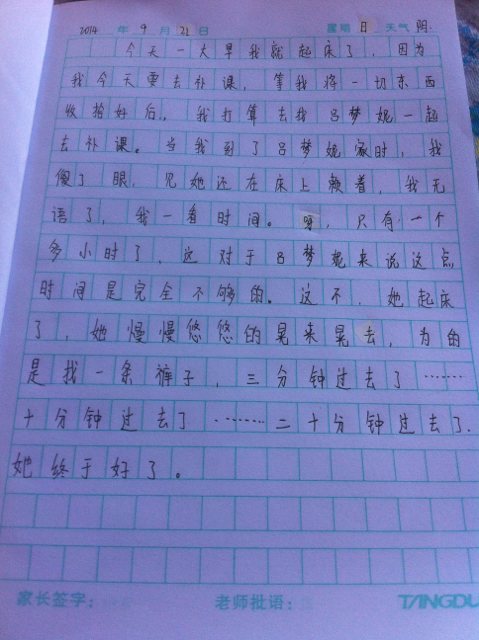 2014 年 9 月 21 日 星期 日 天气 阴
今天一大早我就起床了，因为
我今天要去补课，等我将一切东西
收拾好后，我打算去找吕梦妮一起
去补课。当我到了吕梦妮家时，我
傻了眼，见她还在床上赖着，我无
语了，我一看时间。呀，只有一个
多小时了，这对于吕梦妮来说这点
时间是完全不够的。这不，她起床
了，她慢慢悠悠的晃来晃去，为的
是找一条裤子，三分钟过去了……
十分钟过去了……二十分钟过去了.
她终于好了。
家长签字： 老师批语： TANGDU